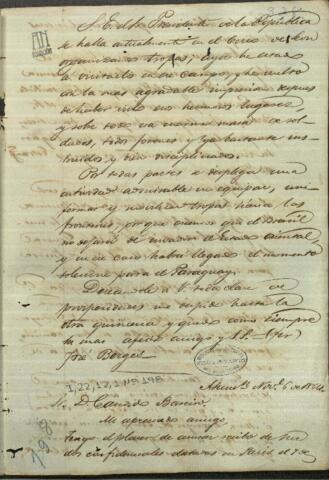 S. E. el Sr. Presidente de la República
se halla actualmente en el Cerro de Leon
organizando tropas; ayer he estado
a visitarlo en su campo, y he vuelto
con la mas agradable impresion despues
de haber visto sus hermosos lugares
y sobre todo una masa de sol-
dados, todos jovenes y ya bastante ins-
truidos y bien disciplinados.
Por todas partes se desplega una
actividad admirable en equipar, uni-
formar y remitir tropas hacia las
fronteras, por que creemos que el Brasil
no dejará de invadir el Estado Oriental,
y en ese caso habrá llegado el momento
solemne para el Paraguay.
Deseandole a V. toda clase de
prosperidades me despido hasta la
otra quincena y quedo como siempre
su mas afecto amigo y S. S.
José Berges
I,22,12,1 Nº 198
Asunción Nov. 6 de 1864.
Sr. D. Candido Bareiro
Mi apreciado amigo
Tengo el placer de acusar recibo de sus
dos confidenciales datadas en Paris el 7 de
198